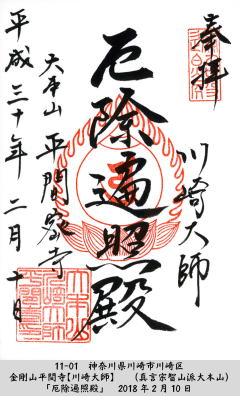 奉拝
川崎大師
厄除遍照殿
大本山 平間寺
平成三十年 二月十日
11-01 神奈川県川崎市川崎区
金剛山平間寺【川崎大師】 (真言宗智山派大本山)
「厄除遍照殿」 2018年2月10日